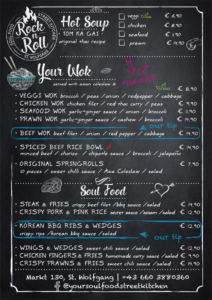 Rock n Roll
Hot Soup
TOM KA GAI
original thai recipe
egg
€ 6.90
chicken
€ 8.90
seafood
€ 9.90
prawn
€ 9.90
Your Wok
served with
VEGGI WOK broccoli / peas / onion / redpepper / cabbage
CHICKEN WOK chicken filet / red thai curry / peas
SEAFOOD WOK garlic-ginger sauce / onion / broccoli
PRAWN WOK garlic-ginger sauce / cashew / broccoli
our tip
BEEF WOK beef filet / onion / red pepper / cabbage
SPICED BEEF RICE BOWL
minced beef / chorizo / chipotle sauce / broccoli / jalapeño
ORIGINAL SPRINGROLLS
/ sweet chili sauce / Asia Coleslaw / salad
Soul Food
STEAK & FRIES crispy beef filet /bbq sauce /salad
CRISPY PORK & PINK RICE secret sauce /salad
KOREAN BBQ RIBS & WEDGES
crispy ribs /korean bbq sauce /salad
our tip
WINGS & WEDGES sweet chili sauce /salad
CHICKEN FINGERS & FRIES homemade curry sauce /salad
CRISPY PRAWNS & FRIES sweet chili sauce /salad
Markt 130, St. Wolfgang | +43 660 3880360
@yoursoulfoodstreetkitchen